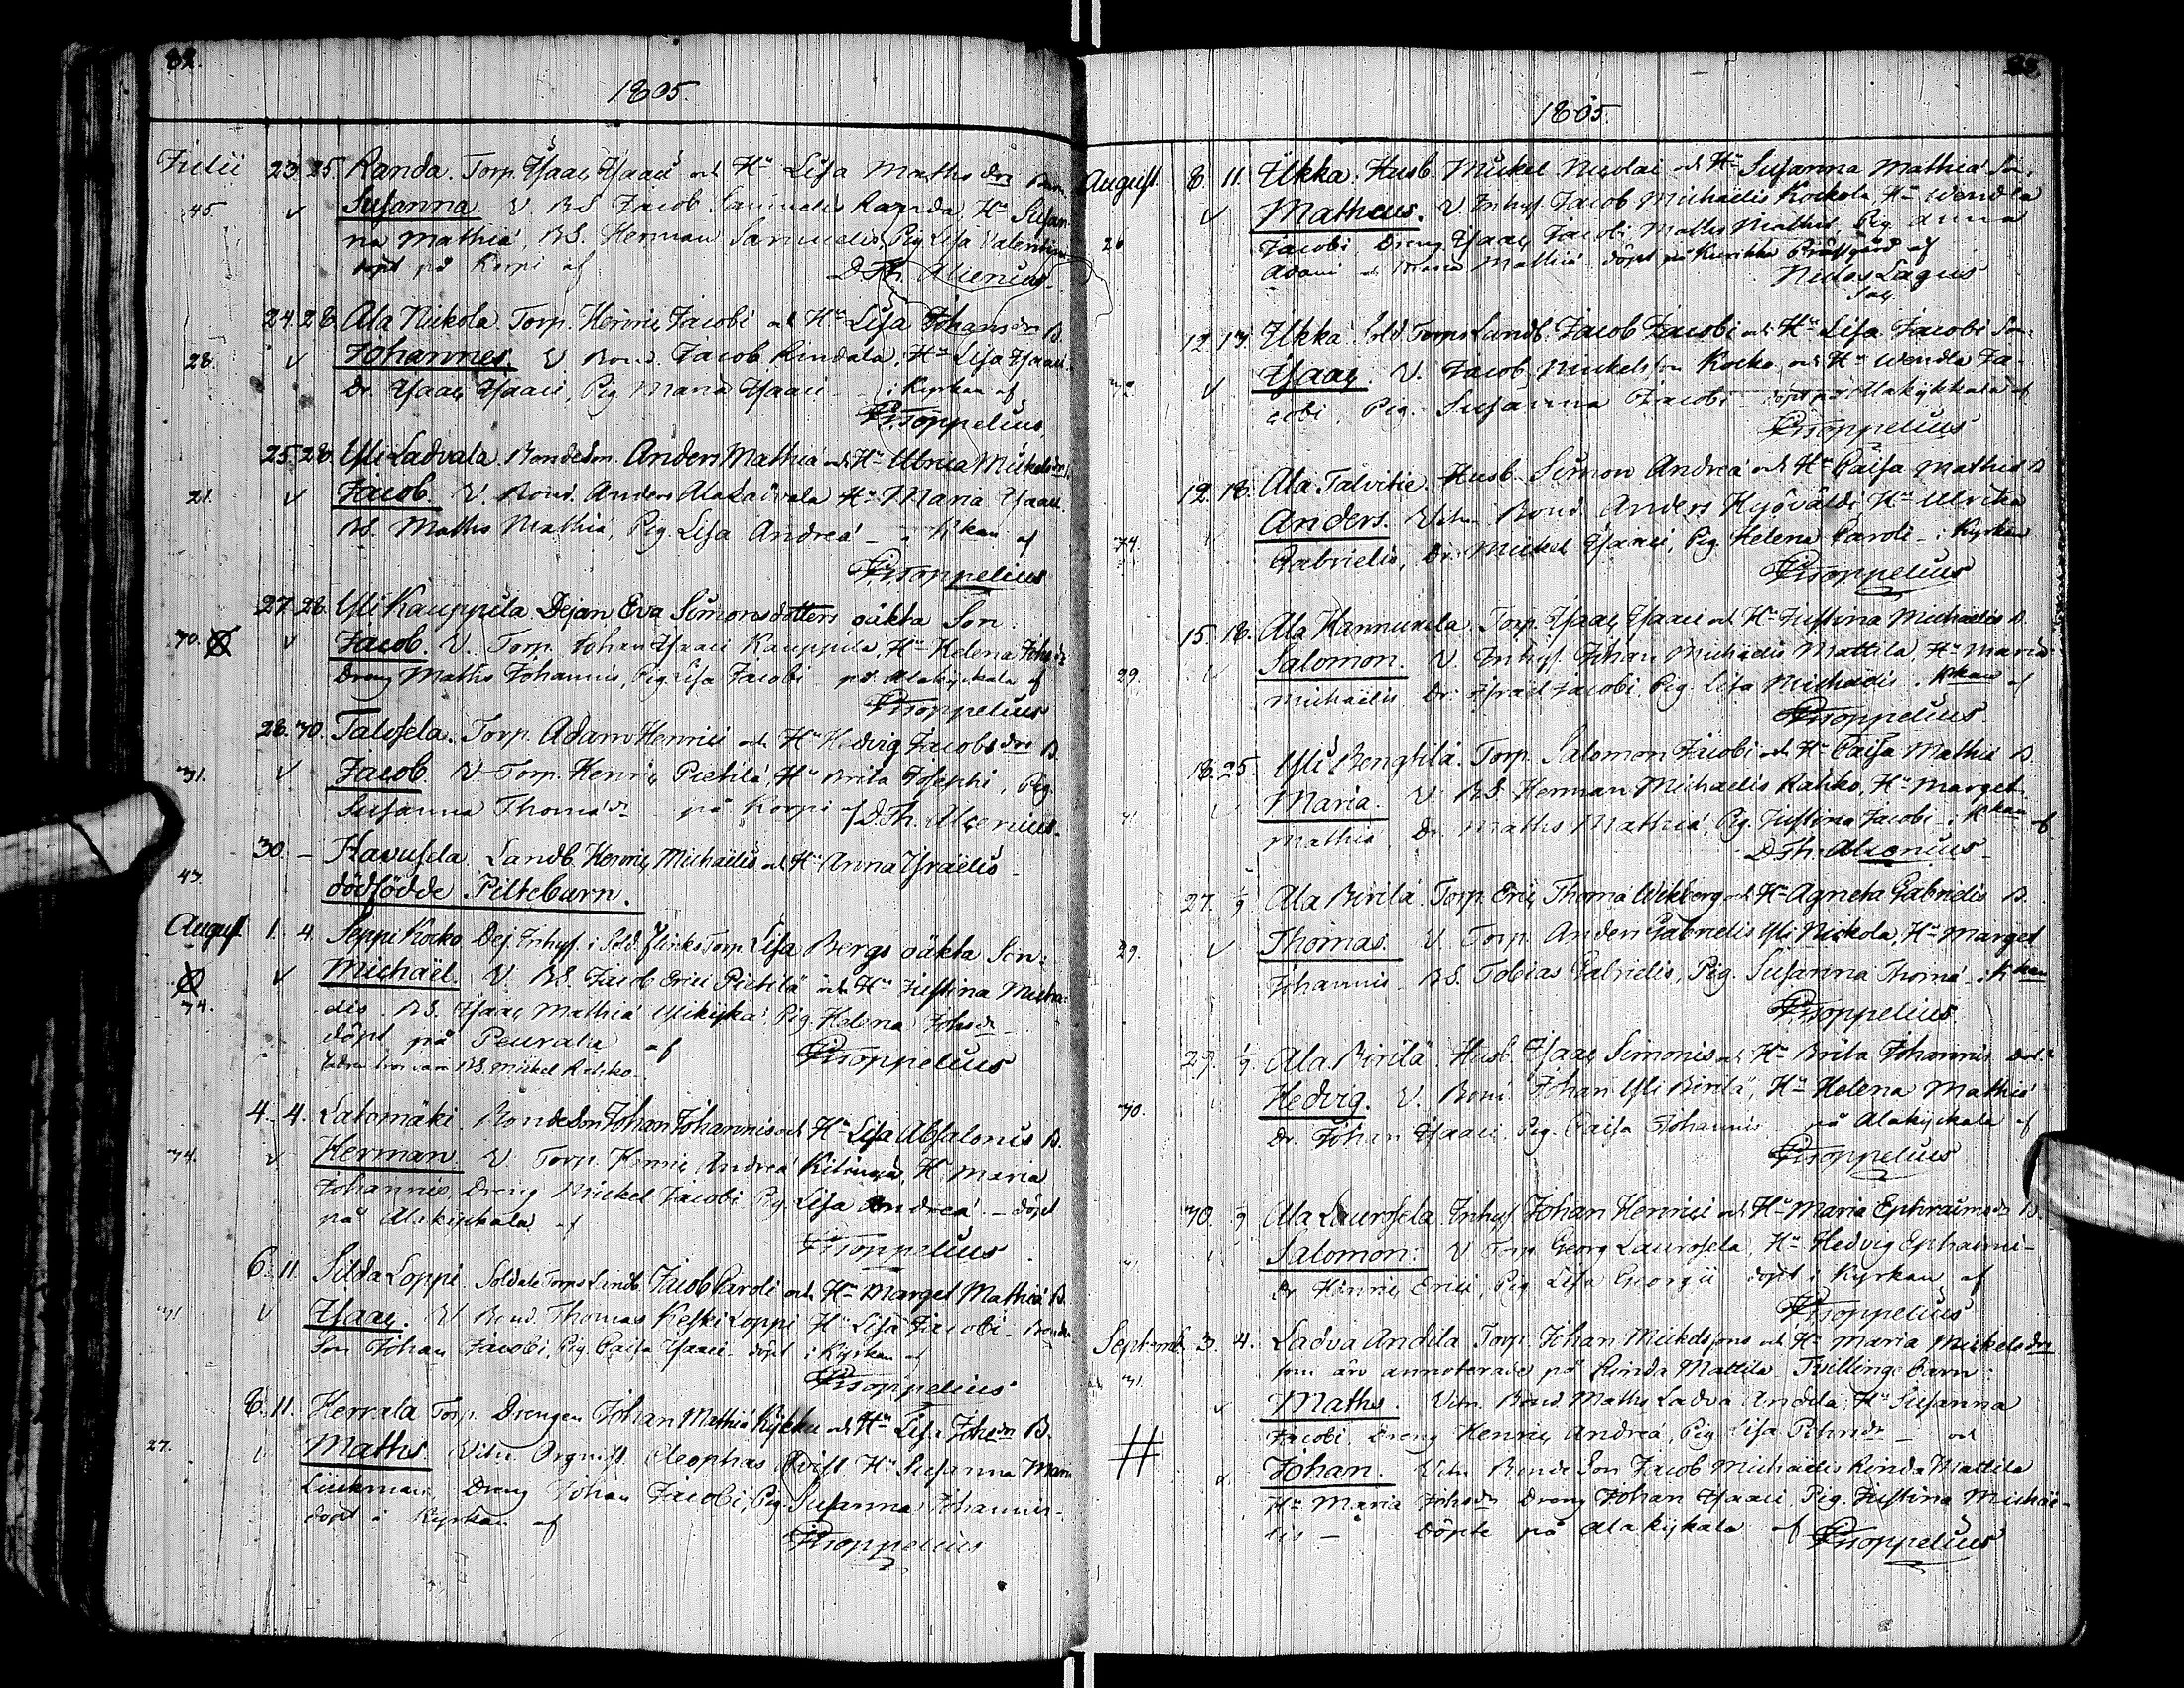 82.
1805.
Julii 23. 25. Randa. Torp. Isaac Isaaci och Hu Lisa Maths dr Barn
45. Susanna. V. BS. Jacob Samuelis Randa, Hu Susan-
na Mathiæ, BS. Herman Samuelis, Pig. Lisa Valentini
döpt på Korpi af D. Th. Alcenius.
24. 28. Ala Nikola. Torp. Henric Jacobi och Hu Lisa Johans dr B.
28. Johannes. V. Bond. Jacob Rindala, Hu Lisa Isaaci
Dr. Isaac Isaaci, Pig. Maria Isaaci - i Kyrkan af
Proppelius.
25. 28. Yli Ladvala. Bondeson. Anders Mathiæ och Hu Ulrica Mickelsdr
21. Jacob. V. Bond. Anders Ala Ladvala Hu Maria Isaaci
BS. Maths Mathiæ, Pig. Lisa Andreæ - i K:kan af
Proppelius
27. 28. Yli Kauppila Dejan Eva Simonsdotters oäkta Son
30. Jacob. V. Torp. Johan Isaaci Kauppila, Hu Helena Johsdr
Dreng Maths Johannis, Pig. Lisa Jacobi på Alakyckala af
Proppelius
28. 30. Talosela. Torp. Adam Henrici och Hu Hedvig Jacobs dr B.
31. Jacob V. Torp. Henric Pietilä, Hu Brita Josephi, Pig.
Susanna Thomædr - på Korpi af D. Th. Alcenius.
30. - Flavusela Landb. Henric Michaëlis och Hu Anna Israëlis
43. dödfödde Piltebarn.
August 1. 4. Seppi Kocko Dej. Inhys. i Sold. Flinks Torp. Lisa Bergs oäkta Son:
Michaël. V. BS. Jacob Erici Pietilä och Hu Justina Micha-
34. ëlis. BS. Isaac Mathiæ Pig. Helena Johsdr
döpt på Peurala af Proppelius
BS. Mickel Rahko.
4. 4. Salomäki Bondeson Johan Johannis och Hu Lisa Absalonis B.
34. Herman V. Torp. Henric Andreæ Hu Maria
Johannis, Dreng Mickel Jacobi, Pig. Lisa Andreæ - döpt
på Alakyckala af
Proppelius
6. 11. Silda Loppi. Soldate Torps Landb. Jacob Caroli och Hu Marget Mathiæ B.
31. Isaac. V. Bond. Thomas Keski Loppi Hu Lisa Jacobi - Bonde
Son Johan Jacobi, Pig. Caisa Isaaci - döpt i Kyrkan af
Proppelius
8. 11. Herrala Torp. Drengen Johan Mathiæ Kykku och Hu Lisa Johsdr B.
27. Maths. Vitn. Orgnist. Cleophas Qvist Hu Susanna Maria
Dreng Johan Jacobi, Pig. Susanna Johannis -
döpt i Kyrkan af
Proppelius
83.
1805.
August 8. 11. Ukka. Husb. Mickel Nicolai och Hu Susanna Mathiæ Son
Matheus. V. Inhys. Jacob Michaëlis Kockola, Hu Wendla
26 Jacobi, Dreng Isaac Jacobi Pig. Anna
Adami och Maria Mathiæ döpt på Kurikka Prästgård af
Niclas Lagus
12. 13. Ukka. Sold. Torps Landb. Jacob Jacobi och Hu Lisa Jacobi Son
32. Isaac. V. Jacob Mickelsson Kocko, och Hu Wendla Ja-
cobi, Pig. Susanna Jacobi - döpt på Alakykkala af
Proppelius
12. 18. Ala Talvitie. Husb. Simon Andreæ och Hu Caisa Mathiæ B
34. Anders. Vitn. Bond. Anders Hyövälti Hu Ulrika
Gabrielis, Dr. Mickel Isaaci, Pig. Helena Caroli - i Kyrkan
Proppelius
15. 18. Ala Hannuxela. Torp. Isaac Isaaci och Hu Justina Michaëlis B.
29. Salomon. V. Inhys. Johan Michaëlis Mattila, Hu Maria
Michaëlis Dr. Israël Jacobi, Pig. Lisa Michaëlis. i K:kan af
Proppelius
18. 25. Yli Benghtilä. Torp. Salomon Jacobi och Hu Caisa Mathiæ B.
Maria. V. BS. Herman Michaëlis Rahko, Hu Marget
Mathiæ, Dr. Maths Mathiæ, Pig. Justina Jacobi - i K:kan af
D. Th. Alcenius.
27. 1/9 Ala Pirilä. Torp. Eric Thomæ Wikberg och Hu Agneta Gabrielis B.
29. Thomas. V. Torp. Anders Gabrielis Yli Nickola, Hu Marget
Johannis - BS. Tobias Gabrielis, Pig. Susanna Thomæ - i K:kan
Proppelius
29. 1/9. Ala Pirilä. Husb. Isaac Simonis och Hu Brita Johannis
30. Hedvig. V. Bond. Johan Yli Pirilä, Hu Helena Mathiæ
Dr. Johan Isaaci, Pig. Caisa Johannis - på Alakyckala af
Proppelius
30. 1/9 Ala Laurosela. Inhys. Johan Henrici och Hu Maria Ephraimsdr B.
31. Salomon. V. Torp. Georg Laurosela, Hu Hedvig Ephraimi -
Dr. Henric Erici, Pig. Lisa Georgii döpt i Kyrkan af
Proppelius
Septemb. 3. 4. Ladva Andila Torp. Johan Mickelssons och Hu Maria Mickelsdrs
som äro annoterade på Rinda Mattila Tvillinge Barn:
31. Maths. Vitn. Bond. Maths Ladva Andila, Hu Susanna
Jacobi. Dreng Henric Andreæ, Pig. Lisa Pehrsdr - och
Johan. Vitn. Bonde Son Jacob Michaëlis Rinda Mattila
Hu Maria Johsdr Dreng Johan Isaaci Pig. Justina Michaë-
lis - döpte på Alakykala af Proppelius